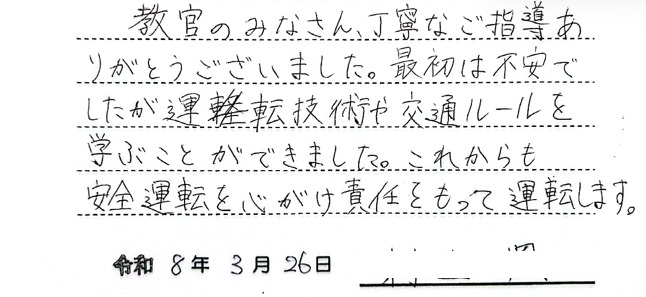 教官のみなさん、丁寧なご指導あ
りがとうございました。最初は不安で
したが運転技術や交通ルールを
学ぶことができました。これからも
安全運転を心がけ責任をもって運転します。
令和 8年 3月 26日